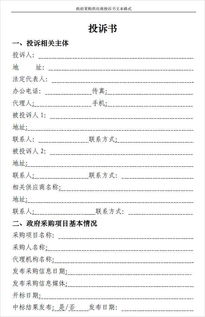 政府采购供应商投诉书文本格式
投诉书
一、投诉相关主体
投诉人:
地 址:
法定代表人:
办公电话: 传真:
代理人: 手机:
被投诉人1:
地址:
联系人: 联系方式:
被投诉人2:
地址:
联系人: 联系方式:
相关供应商名称:
地址:
联系人: 联系方式:
二、政府采购项目基本情况
采购项目名称:
采购人名称:
代理机构名称:
发布采购信息日期:
发布采购信息媒体:
开标日期:
中标结果发布: 是/否 发布日期: